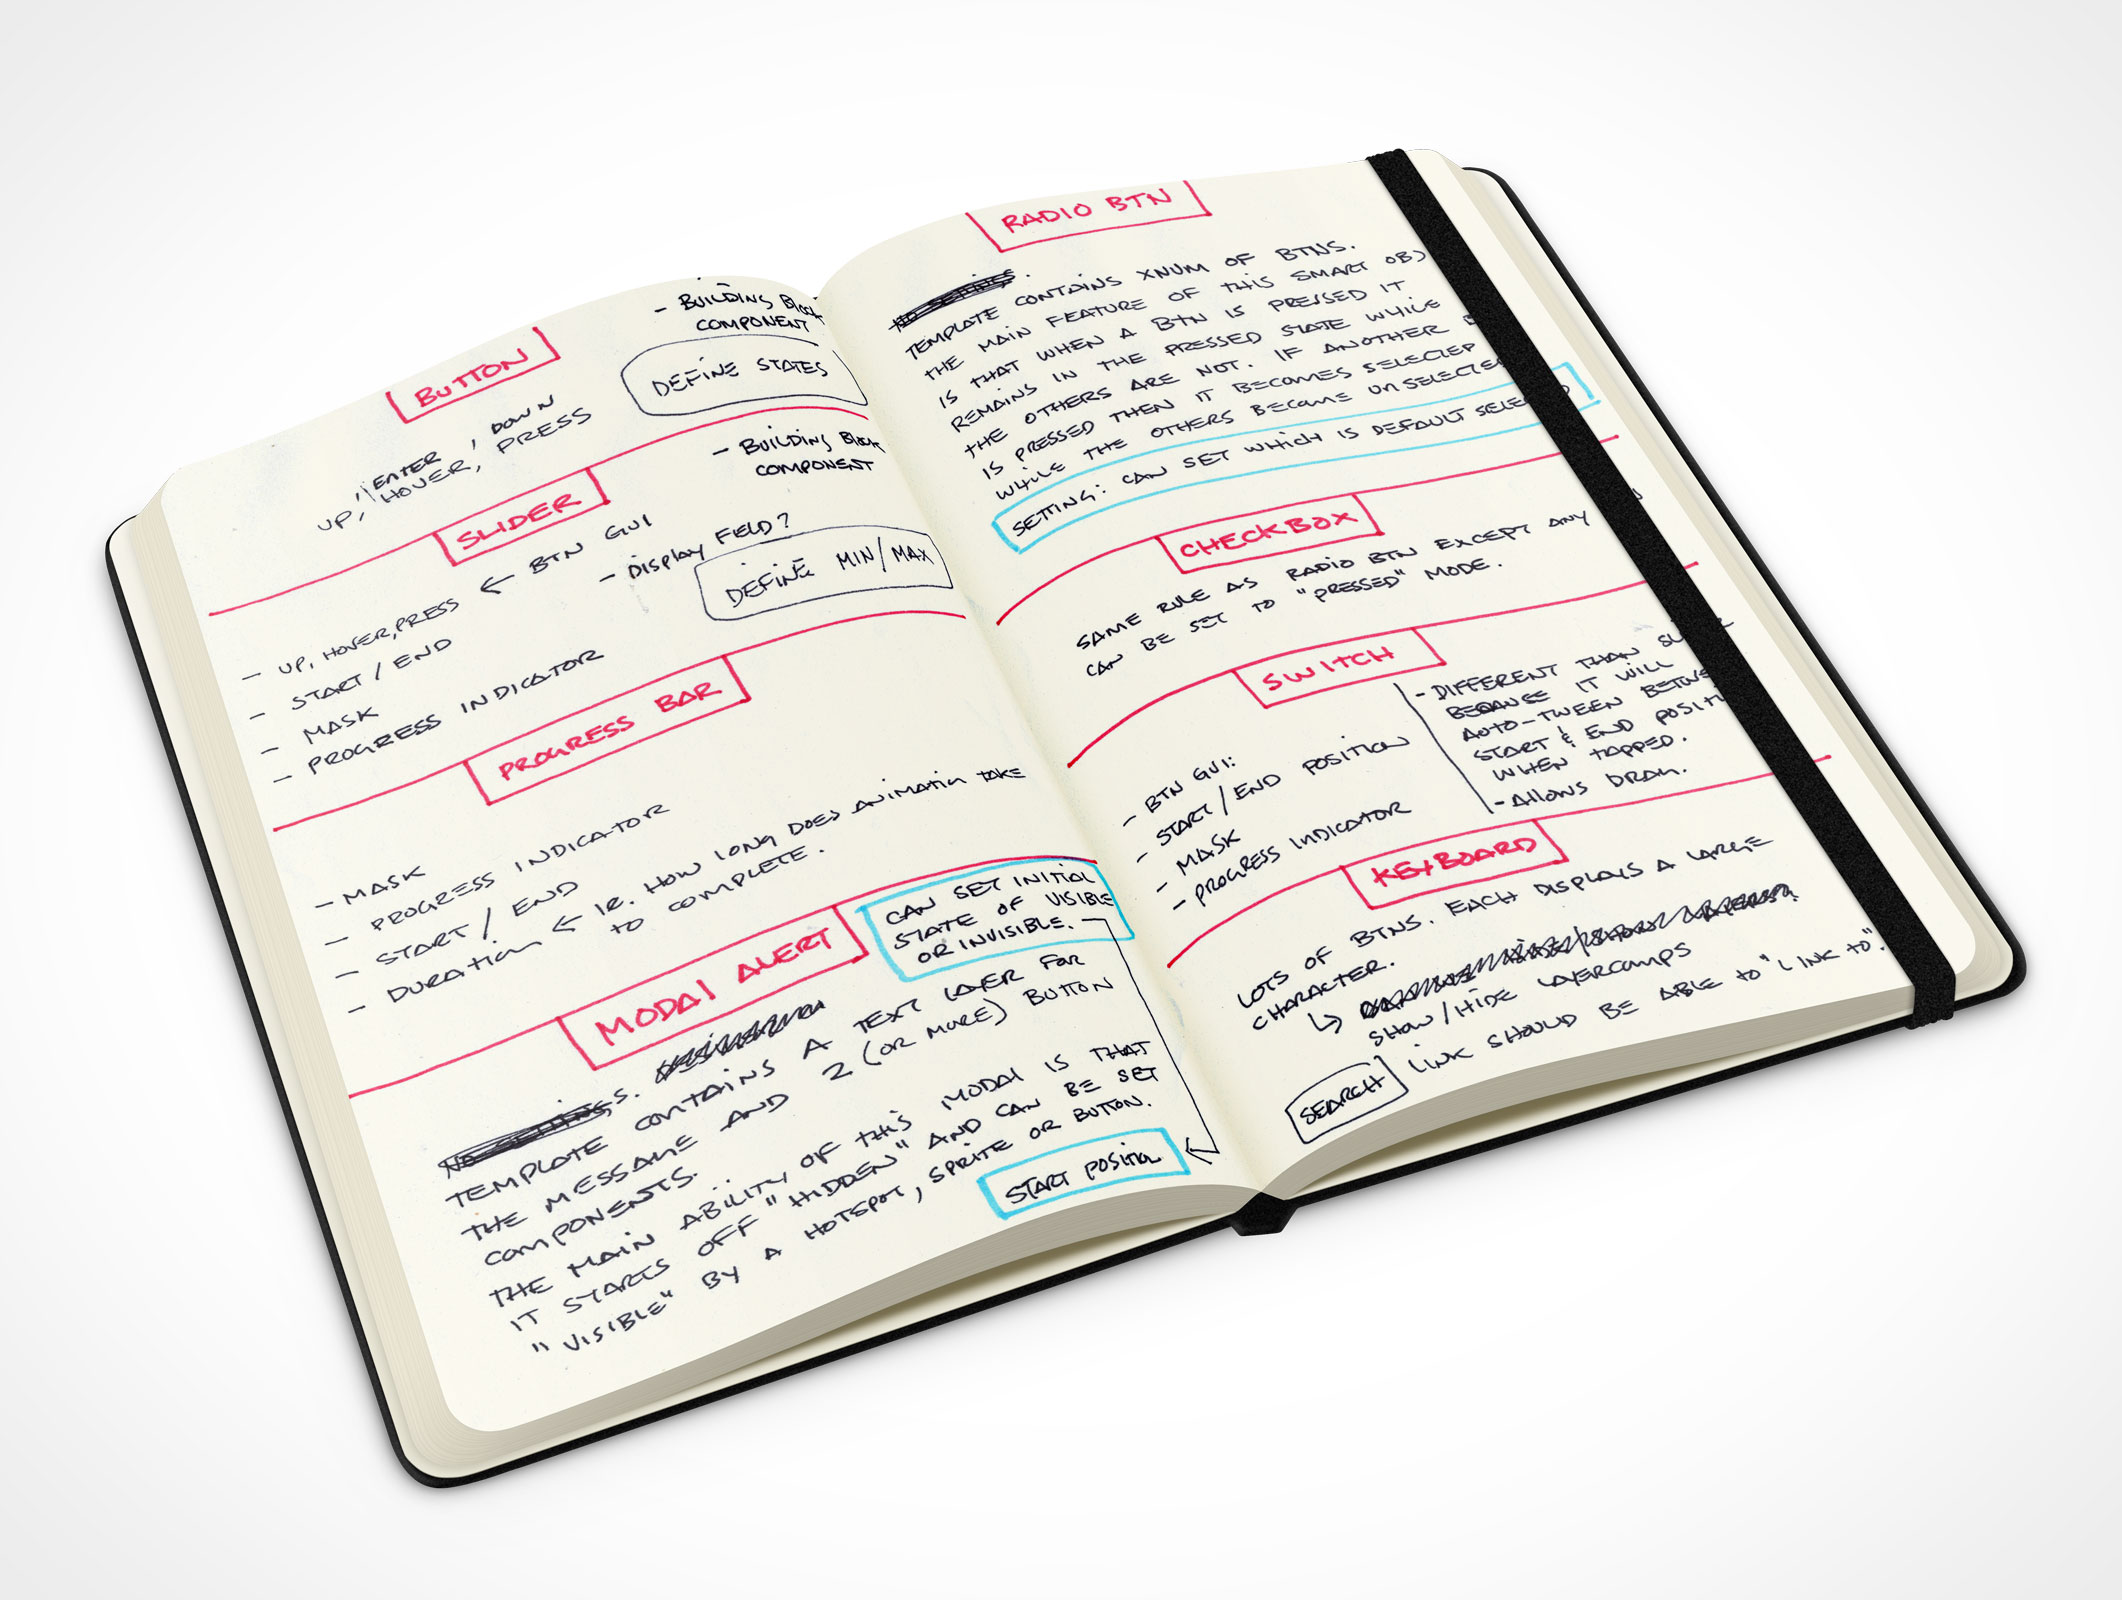 BUTTON
- BUILDING BLOCK
COMPONENT
DEFINE STATES
, ENTER , DOWN
UP, HOVER, PRESS
SLIDER
- BUILDING BLOCK
COMPONENT
- UP, HOVER, PRESS ← BTN GUI
- DISPLAY FIELD?
DEFINE MIN/MAX
- START / END
- MASK
- PROGRESS INDICATOR
PROGRESS BAR
- MASK
- PROGRESS INDICATOR
- START / END
- DURATION ← IE. HOW LONG DOES ANIMATION TAKE
TO COMPLETE.
MODAL ALERT
CAN SET INITIAL
STATE OF VISIBLE
OR INVISIBLE.
NO SETTINGS.
TEMPLATE CONTAINS A TEXT LAYER FOR
THE MESSAGE AND 2 (OR MORE) BUTTON
COMPONENTS.
THE MAIN ABILITY OF THIS MODAL IS THAT
IT STARTS OFF "HIDDEN" AND CAN BE SET
"VISIBLE" BY A HOTSPOT, SPRITE OR BUTTON.
START POSITION
RADIO BTN
NO SETTINGS.
TEMPLATE CONTAINS XNUM OF BTNS.
THE MAIN FEATURE OF THIS SMART OBJ
IS THAT WHEN A BTN IS PRESSED IT
REMAINS IN THE PRESSED STATE WHILE
THE OTHERS ARE NOT. IF ANOTHER
IS PRESSED THEN IT BECOMES SELECTED
WHILE THE OTHERS BECOME UNSELECTED
SETTING: CAN SET WHICH IS DEFAULT SELE
CHECKBOX
SAME RULE AS RADIO BTN EXCEPT ANY
CAN BE SET TO "PRESSED" MODE.
SWITCH
- DIFFERENT THAN
BECAUSE IT WILL
AUTO-TWEEN BETWE
START & END POSITI
WHEN TAPPED.
- ALLOWS DRAG.
- BTN GUI:
- START/END POSITION
- MASK
- PROGRESS INDICATOR
KEYBOARD
LOTS OF BTNS. EACH DISPLAYS A LARGE
CHARACTER.
↳
SHOW/HIDE LAYERCOMPS
SEARCH LINK SHOULD BE ABLE TO "LINK TO".